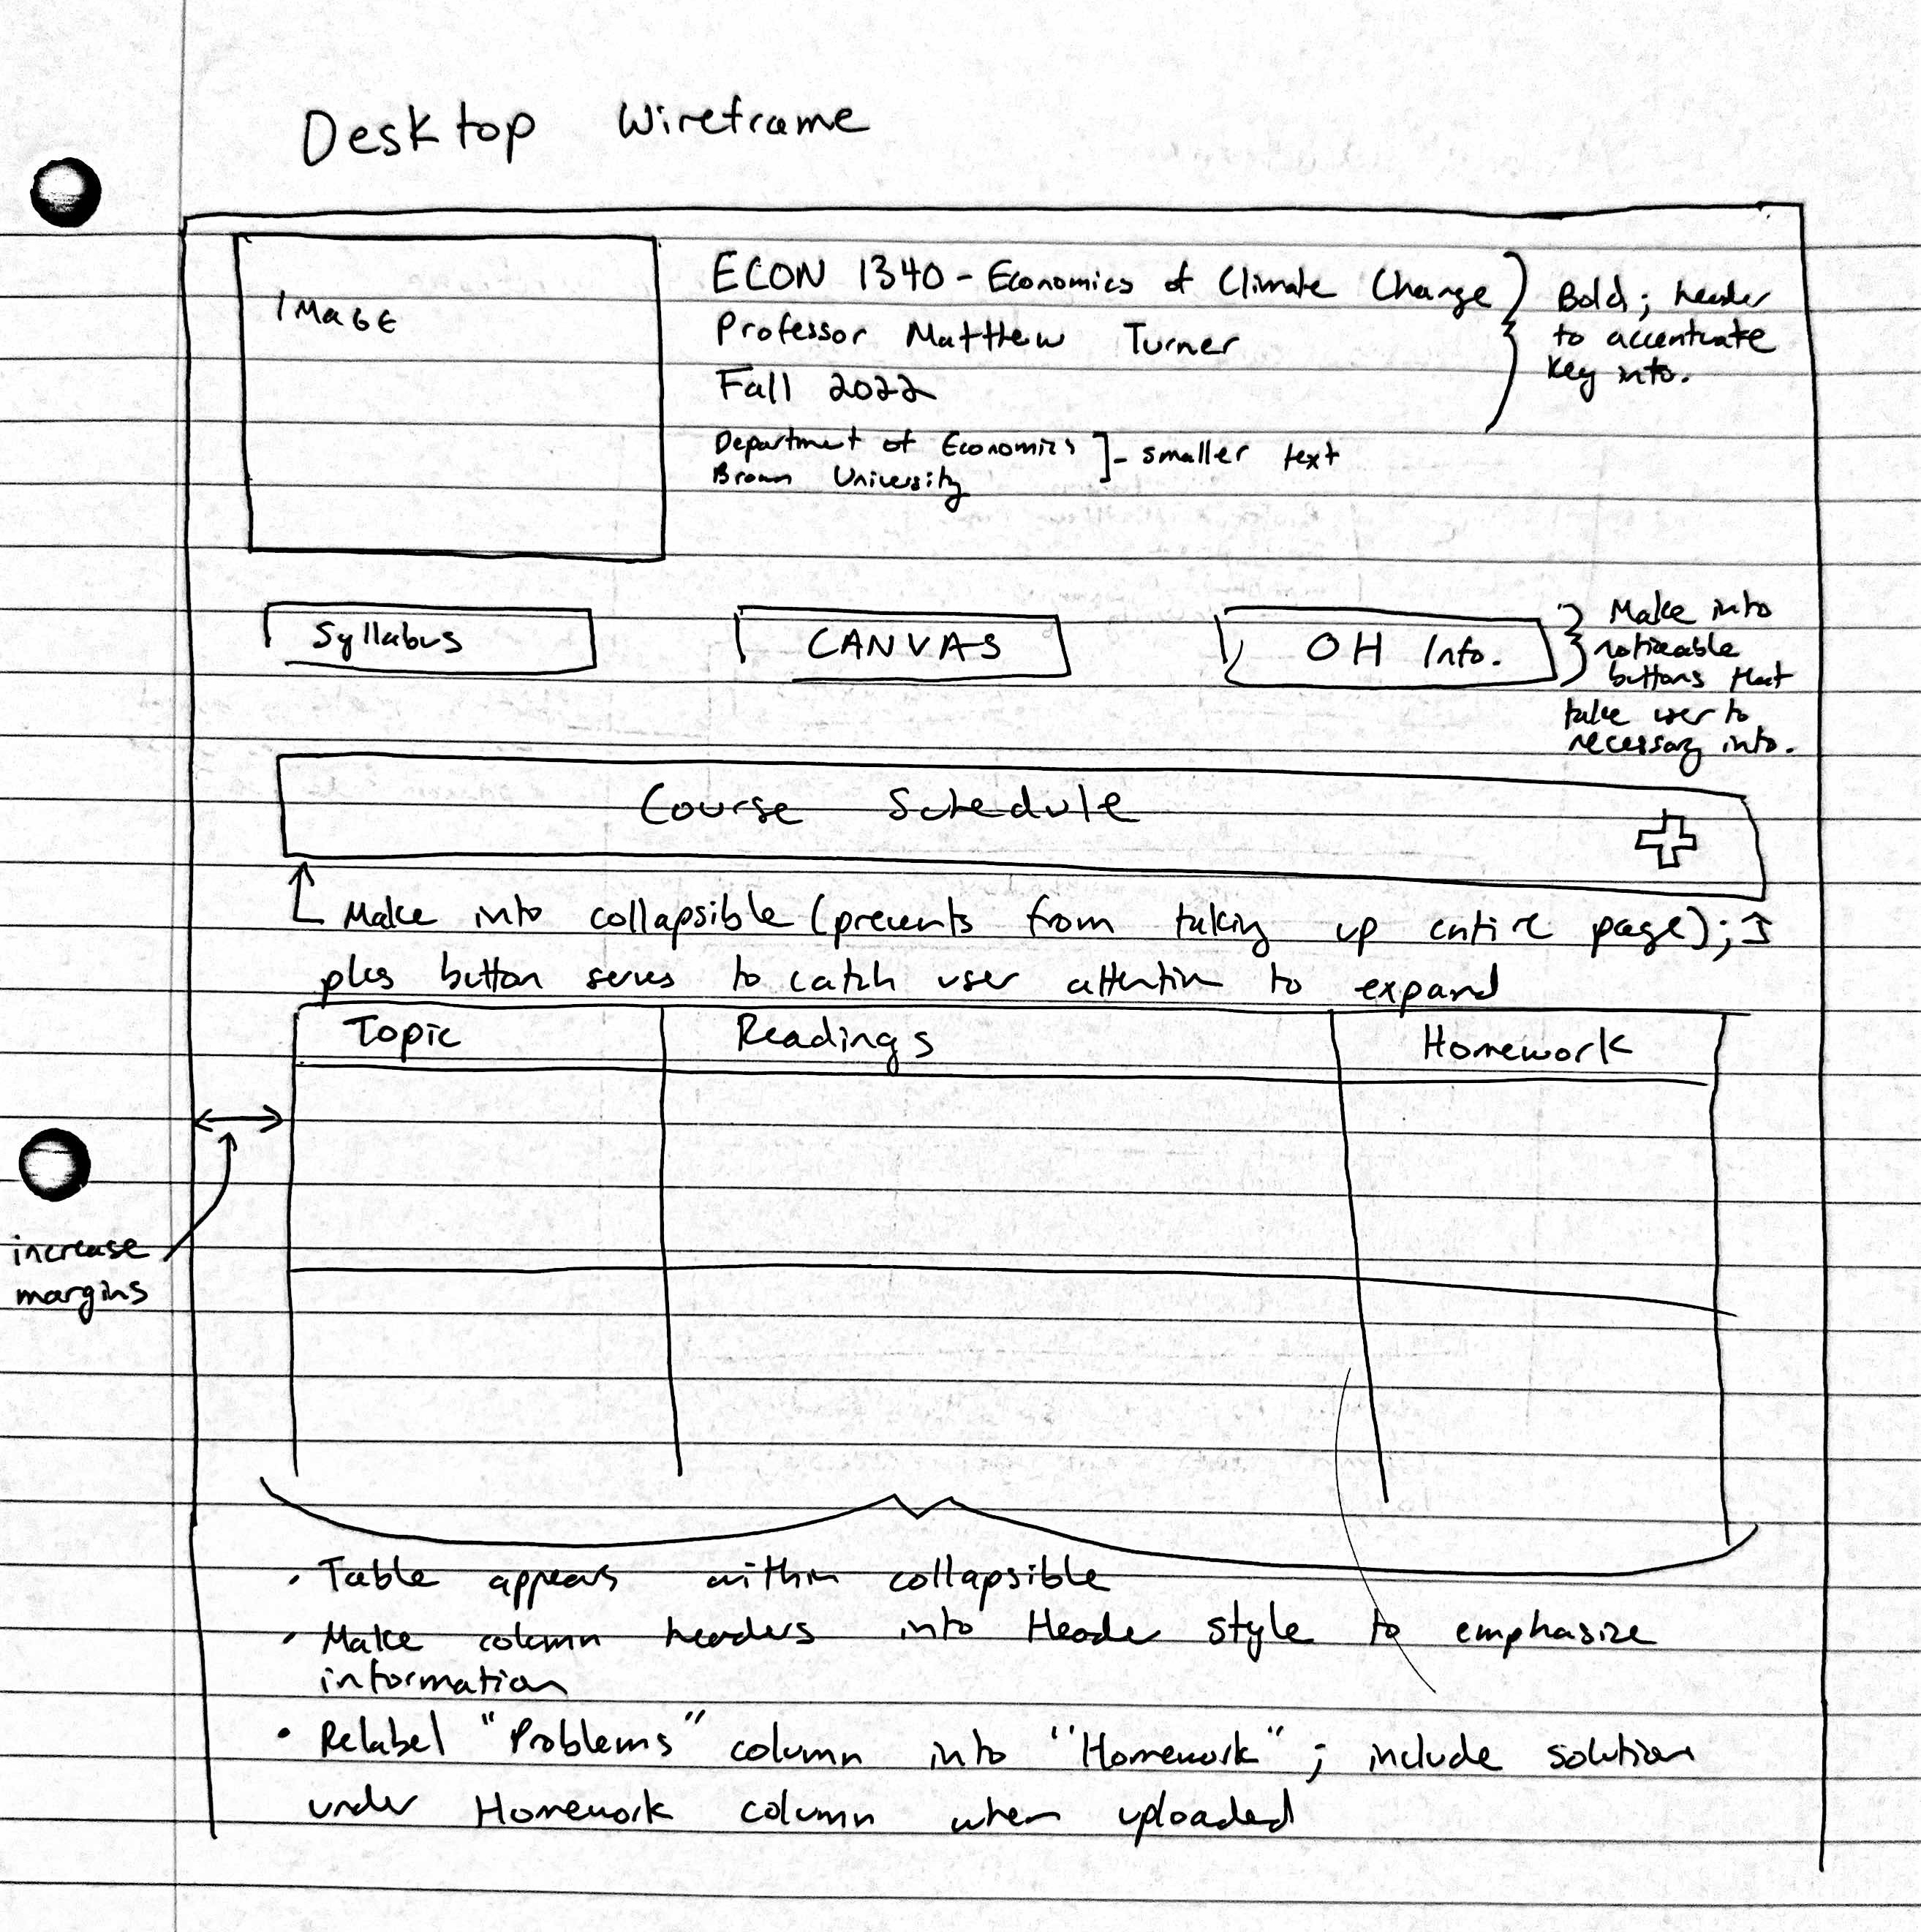 Desktop Wireframe
IMAGE
ECON 1340 - Economics of Climate Change
Professor Matthew Turner
Fall 2022
Department of Economics
Brown University
Bold; header
to accentuate
key info.
- smaller text
Syllabus
CANVAS
OH Info.
Make into
noticeable
buttons that
take user to
necessary info.
Course Schedule
Make into collapsible (prevents from taking up entire page);
plus button serves to catch user attention to expand
Topic
Readings
Homework
increase
margins
• Table appears within collapsible
• Make column headers into Header style to emphasize
information
• Relabel "Problems" column into "Homework"; include solution
under Homework column when uploaded